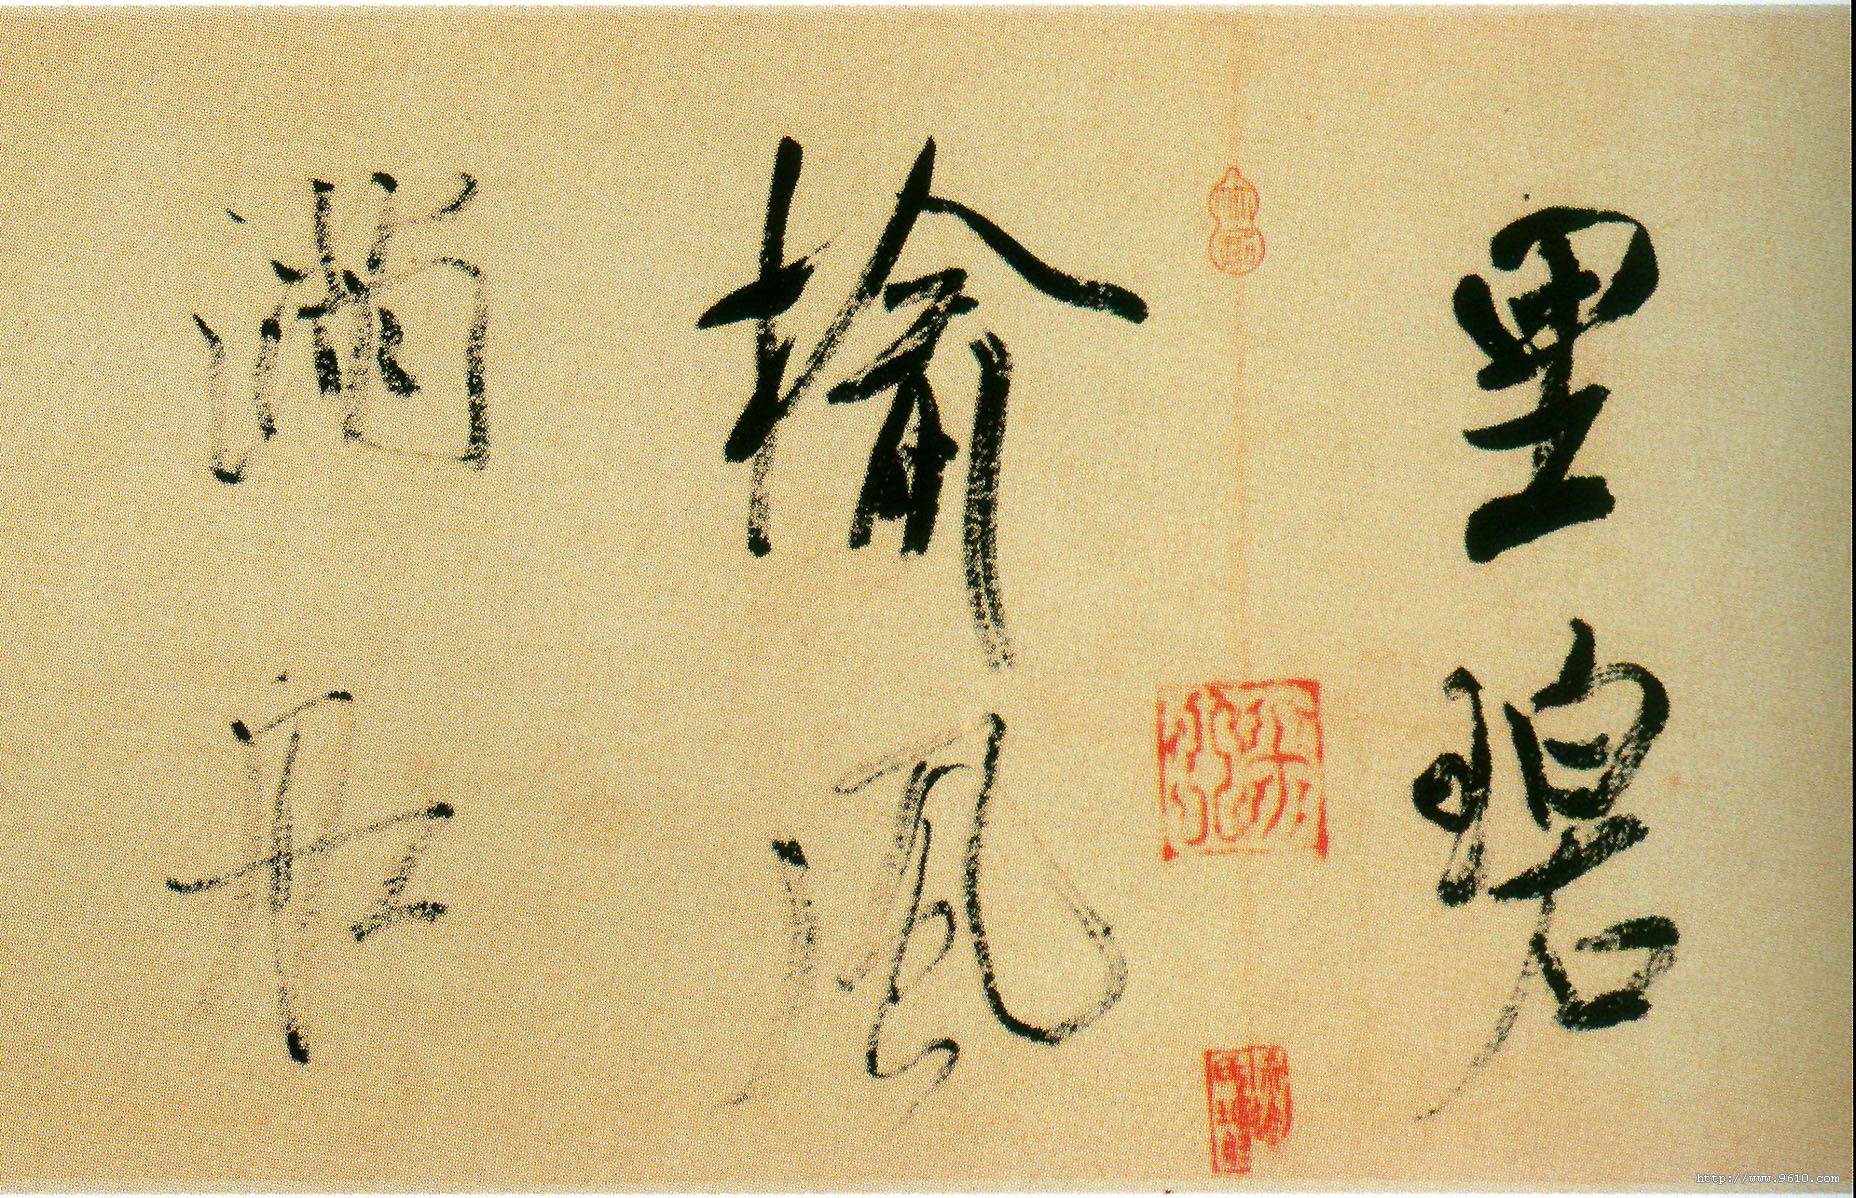 里碧
榆風
滿舟
http://www.9610.com